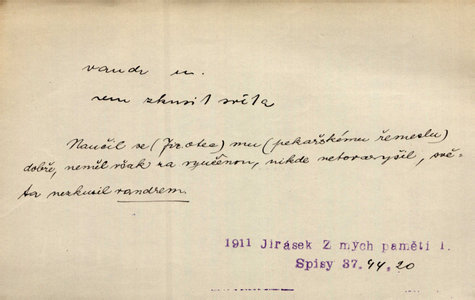 vandr m.
jem zkusil světa
Naučil se (J. otec) mu (pekařskému řemeslu)
dobře, neměl však za vyučenou, nikde netovaryšil, svě-
ta nezkusil vandrem.
1911 Jirásek Z mých pamětí I.
Spisy 37. 44.20